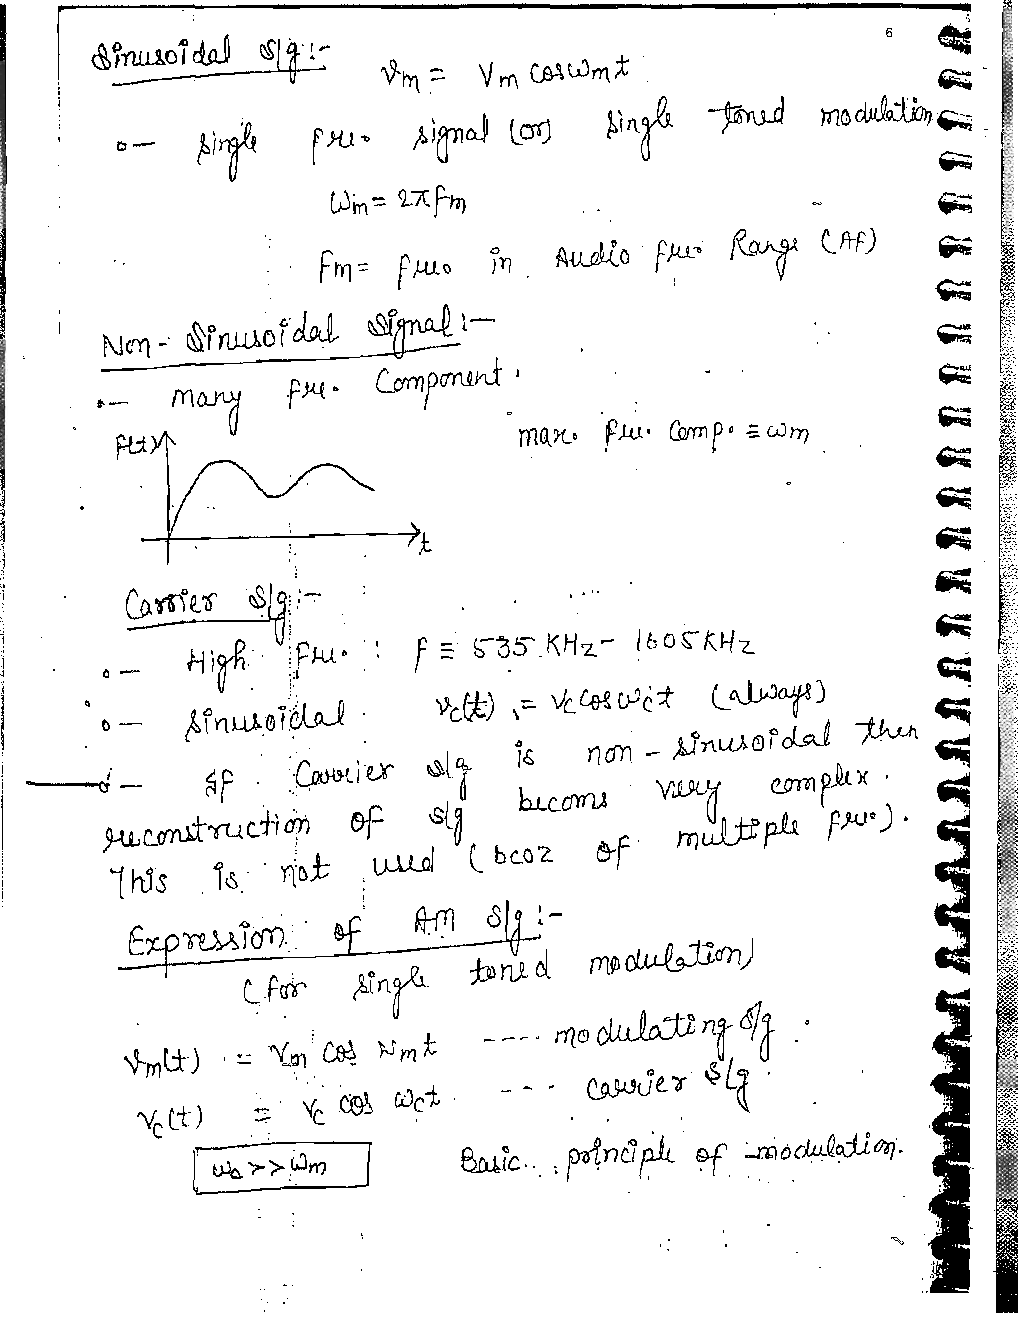 6
Sinusoidal s/g :-
vm = Vm cosωmt
o— single fre. signal (or) single toned modulation
ωm = 2πfm
Fm = freo in Audio fre. Range (AF)
Non-Sinusoidal signal :-
•— many fre. Component.
max. fre. Comp. ≡ ωm
F(t)
t
Carrier s/g :-
o— High fre. : f ≡ 535 KHz - 1605 KHz
o— sinusoidal vc(t) = Vc cosωct (always)
o— If Carrier s/g is non-sinusoidal then
reconstruction of s/g becoms very complex.
This is not used (bcoz of multiple fre.).
Expression of AM s/g :-
(for single toned modulation)
Vm(t) = Vm cos ωmt ---- modulating s/g.
Vc(t) = Vc cos ωct --- carrier s/g
ωc >> ωm Basic principle of modulation.